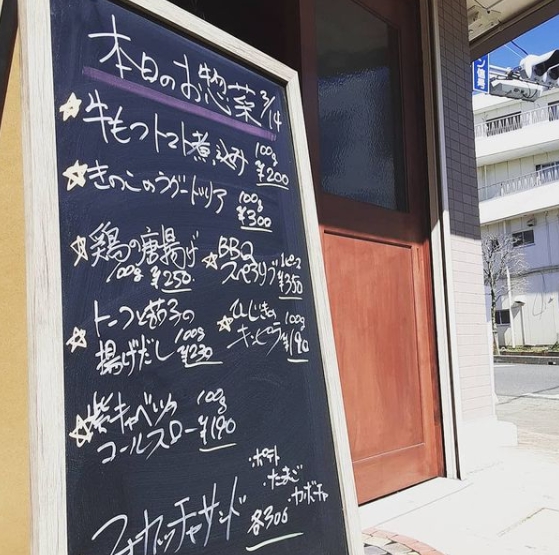 本日のお惣菜 3/14
☆牛もつトマト煮込み 100g ¥200
☆きのこのラグードリア 100g ¥300
☆鶏の唐揚げ 100g ¥250
☆BBQ
スペアリブ 1ピース ¥350
☆トーフと茄子の
揚げだし 100g ¥230
☆ひじきの
キンピラ 100g ¥190
☆紫キャベツの
コールスロー 100g ¥190
フォカッチャサンド
・ポテト
・たまご
・カボチャ
各300